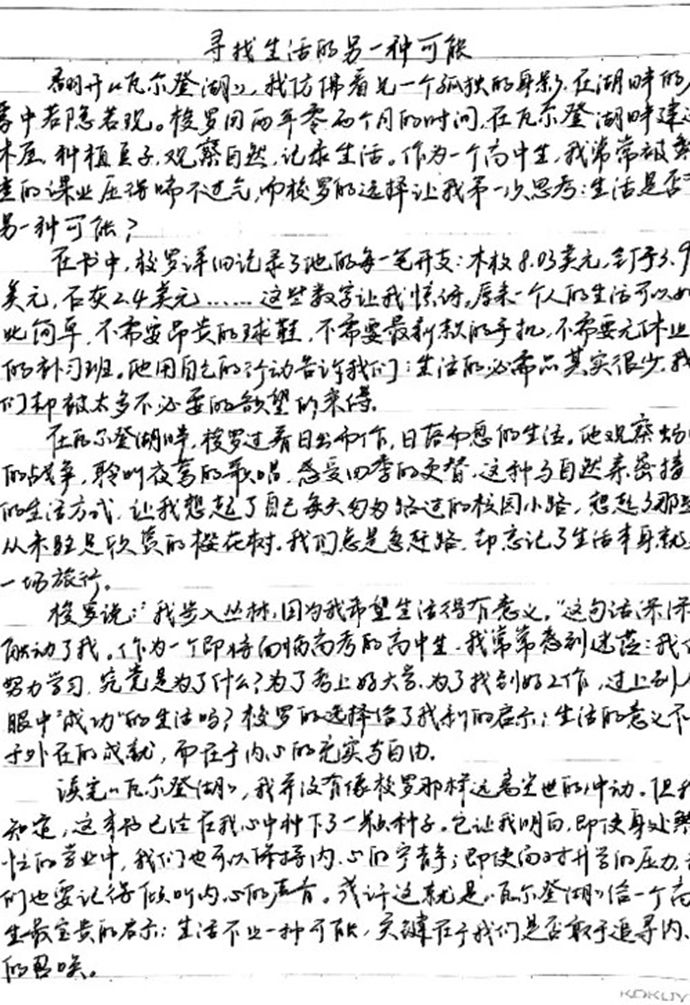 寻找生活的另一种可能
翻开《瓦尔登湖》,我仿佛看见一个孤独的身影,在湖畔的
雾中若隐若现。梭罗用两年零两个月的时间,在瓦尔登湖畔建
木屋,种植豆子,观察自然,记录生活。作为一个高中生,我常常被繁
重的课业压得喘不过气,而梭罗的选择让我第一次思考:生活是否
另一种可能?
在书中,梭罗详细记录了他的每一笔开支:木板8.03美元,钉子3.9
美元,石灰2.4美元……这些数字让我惊讶。原来一个人的生活可以如
此简单,不需要昂贵的球鞋,不需要最新款的手机,不需要无休止
的补习班。他用自己的行动告诉我们:生活的必需品其实很少,我
们却被太多不必要的欲望所束缚。
在瓦尔登湖畔,梭罗过着日出而作,日落而息的生活。他观察蚂
的战争,聆听夜莺的歌唱,感受四季的更替。这种与自然亲密接
的生活方式,让我想起了自己每天匆匆路过的校园小路,想起了那些
从未驻足欣赏的樱花树。我们总是急赶路,却忘记了生活本身就
一场旅行。
梭罗说:"我步入丛林,因为我希望生活得有意义。"这句话深深
触动了我。作为一个即将面临高考的高中生,我常常感到迷茫:我们
努力学习,究竟是为了什么?为了考上好大学,为了找到好工作,过上别人
眼中"成功"的生活吗?梭罗的选择给了我新的启示:生活的意义不
于外在的成就,而在于内心的充实与自由。
读完《瓦尔登湖》,我并没有像梭罗那样远离尘世的冲动。但我
知道,这本书已经在我心中种下了一颗种子。它让我明白,即使身处繁
忙的学业中,我们也可以保持内心的宁静;即使面对升学的压力,我
们也要记得倾听内心的声音。或许这就是《瓦尔登湖》给一个高
生最宝贵的启示:生活不止一种可能,关键在于我们是否敢于追寻内
的召唤。
KOKUY